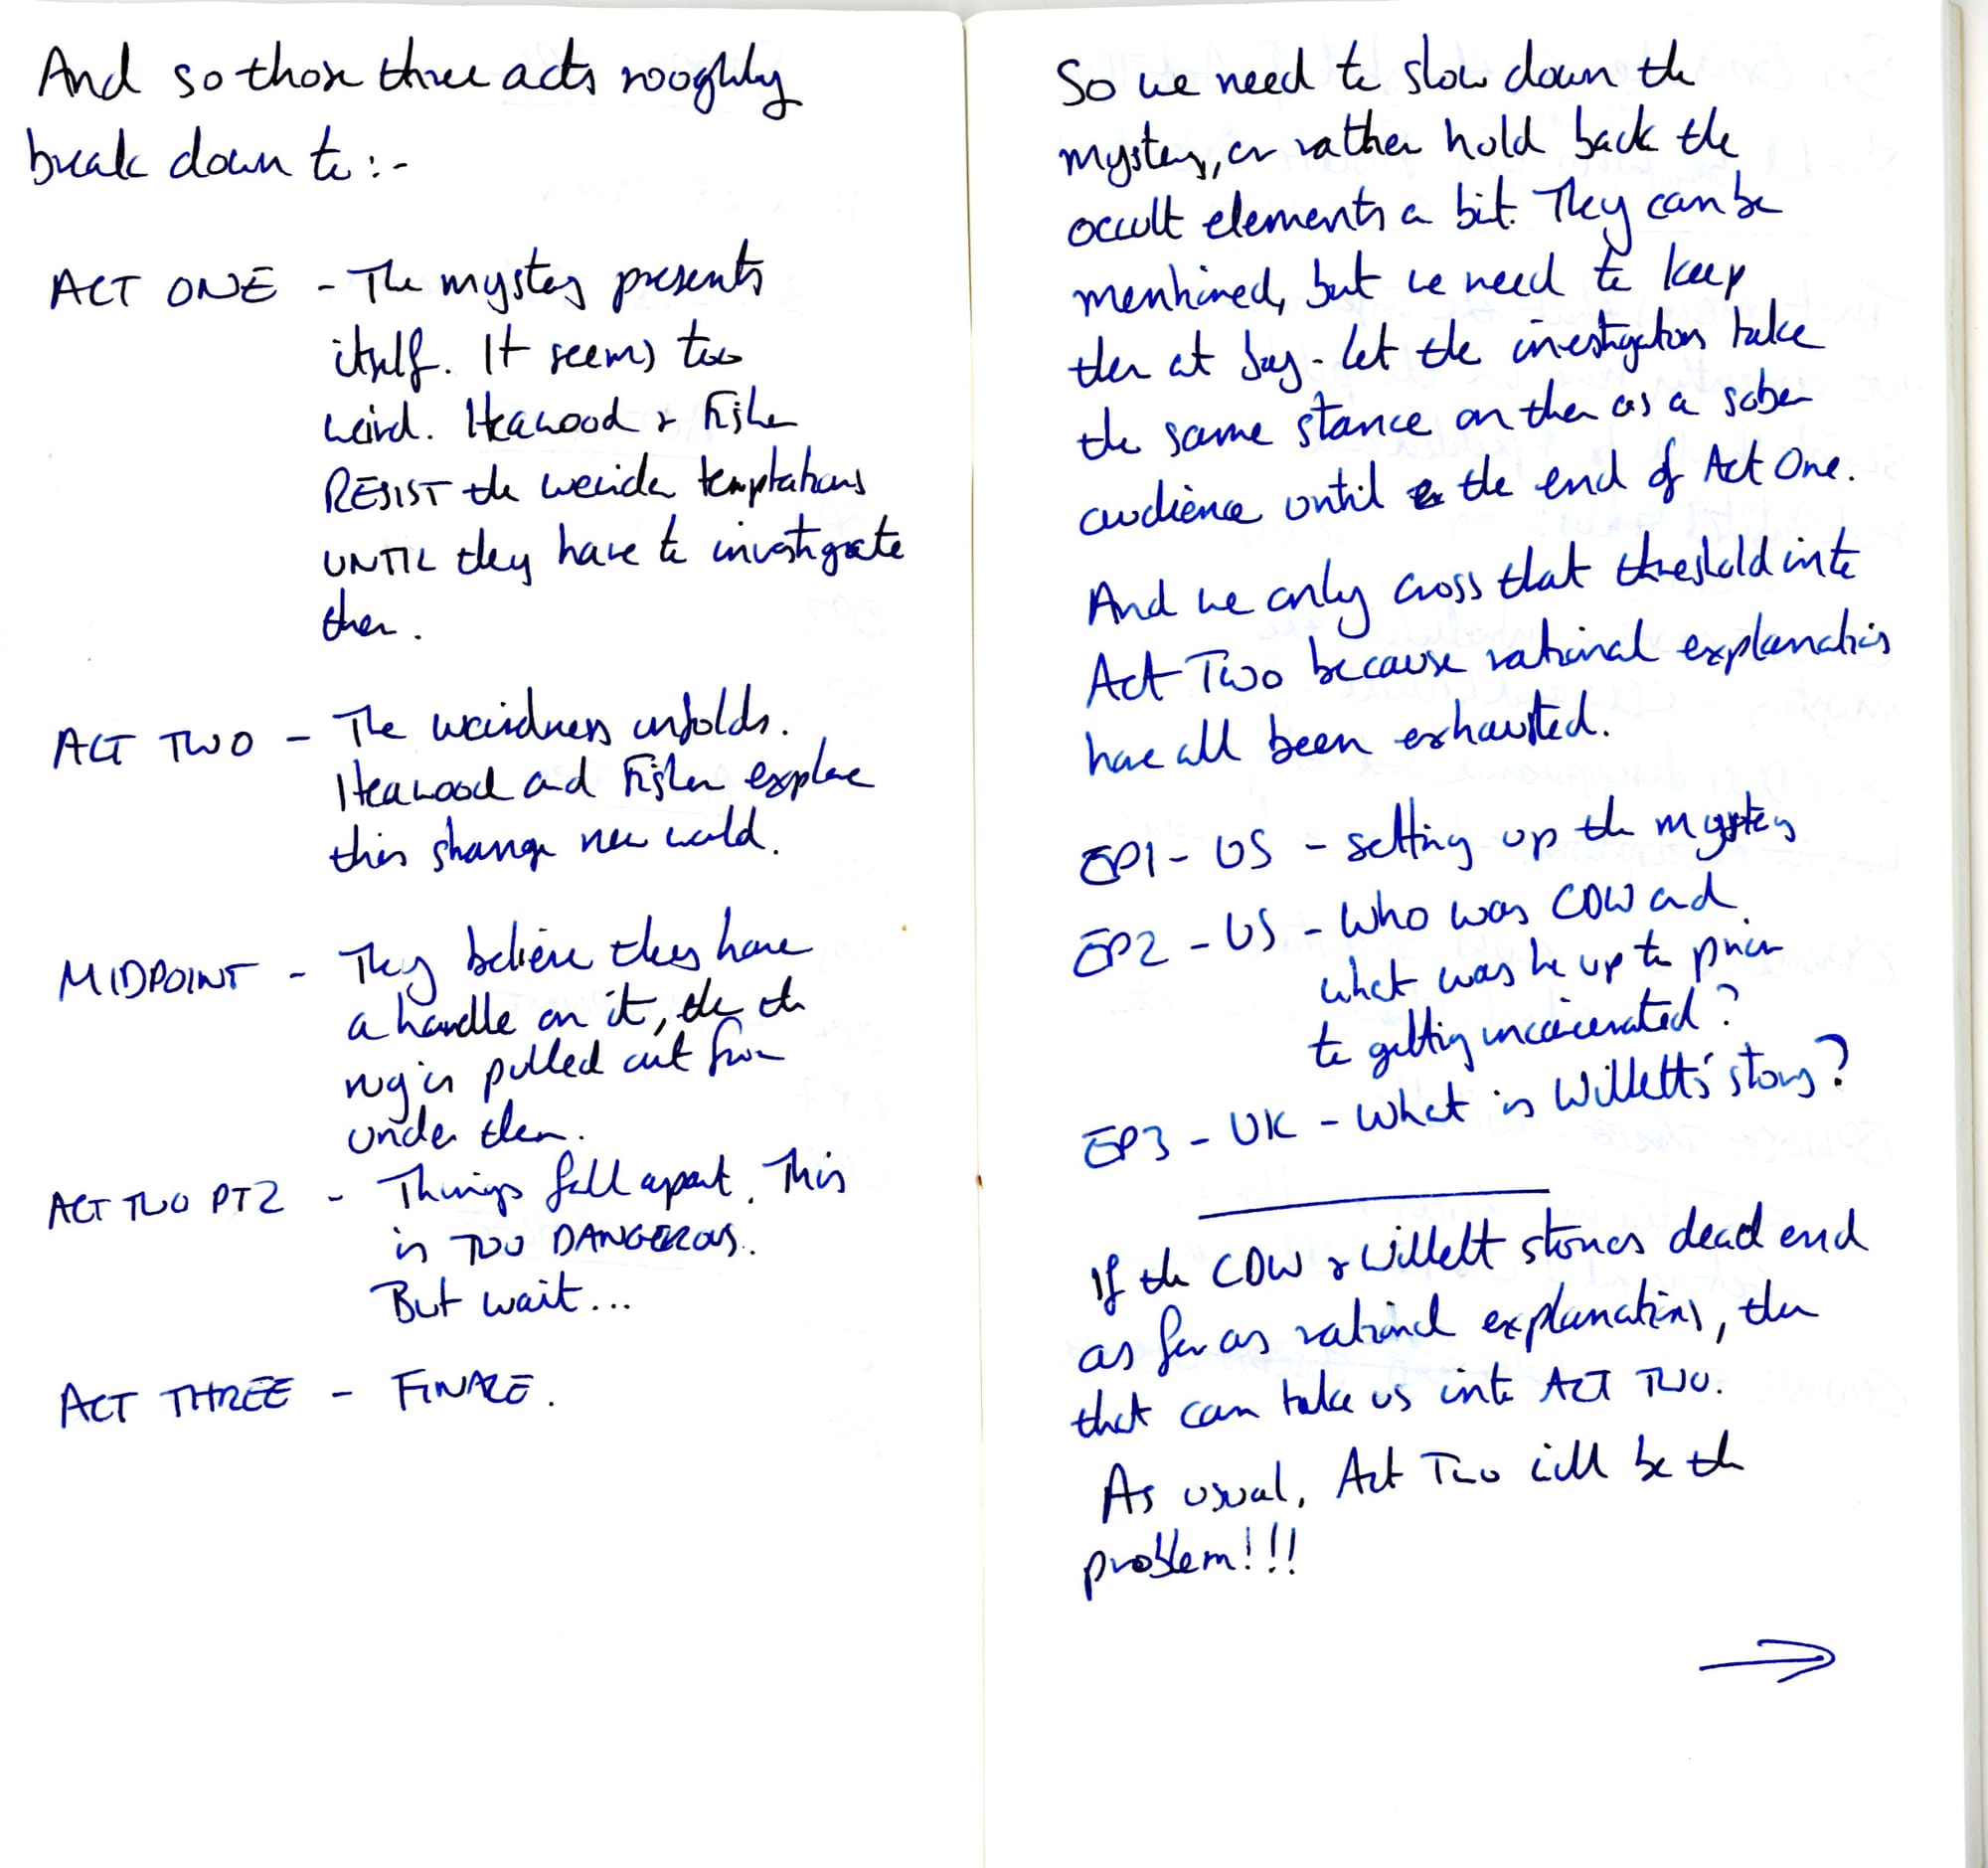 And so those three acts roughly
break down to :-
ACT ONE - The mystery presents
itself. It seems too
weird. Heawood & Fisher
RESIST the weirder temptations
UNTIL they have to investigate
them.
ACT TWO - The weirdness unfolds.
Heawood and Fisher explore
this strange new world.
MIDPOINT - They believe they have
a handle on it, then the
rug is pulled out from
under them.
ACT TWO PT2 - Things fall apart. This
is TOO DANGEROUS.
But wait...
ACT THREE - FINALE.
So we need to slow down the
mystery, or rather hold back the
occult elements a bit. They can be
mentioned, but we need to keep
them at bay - let the investigators take
the same stance on them as a sober
audience until the end of Act One.
And we only cross that threshold into
Act Two because rational explanations
have all been exhausted.
EP1 - US - setting up the mystery
EP2 - US - Who was CDW and
what was he up to prior
to getting incarcerated?
EP3 - UK - What is Willett's story?
If the CDW & Willett stories dead end
as far as rational explanations, then
that can take us into ACT TWO.
As usual, Act Two will be the
problem!!!
→